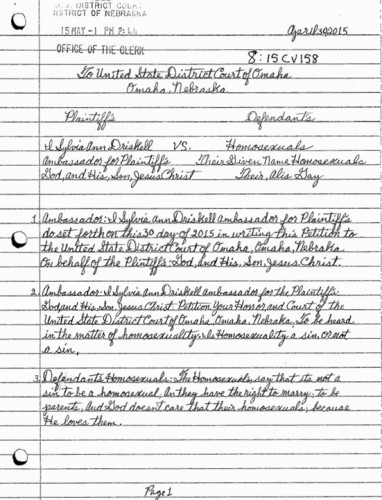 U.S. DISTRICT COURT
DISTRICT OF NEBRASKA
15 MAY -1 PM 2:44
April 30, 2015
OFFICE OF THE CLERK
8:15CV158
To United State District Court of Omaha
Omaha, Nebraska.
Plaintiffs Defendants
I Sylvia Ann Driskell VS. Homosexuals
Ambassador for Plaintiffs Their Given Name Homosexuals
God, and His, Son, Jesus Christ Their, Alis Gay
1. Ambassador: I Sylvia Ann Driskell Ambassador for Plaintiffs
do set forth on this 30 day of 2015 in writing this Petition to
the United State District Court of Omaha, Omaha, Nebraka.
On behalf of the Plintiffs God, and His, Son, Jesus Christ.
2. Ambassador: I Sylvia Ann Driskell ambassador for the Plaintiffs
God, and His Son, Jesus Christ. Petition Your Honor, and Court of the
United State District Court of Omaha, Omaha, Nebraka, To be heard
in the matter of homosexuality. Is Homosexuality a sin, or not
a sin,
3. Defendants Homosexuals: The Homosexuals, say that its not a
sin to be a homosexual, An they have the right to marry, to be
parents, And God doesnt care that their homosexuals, because
He loves them.
Page 1